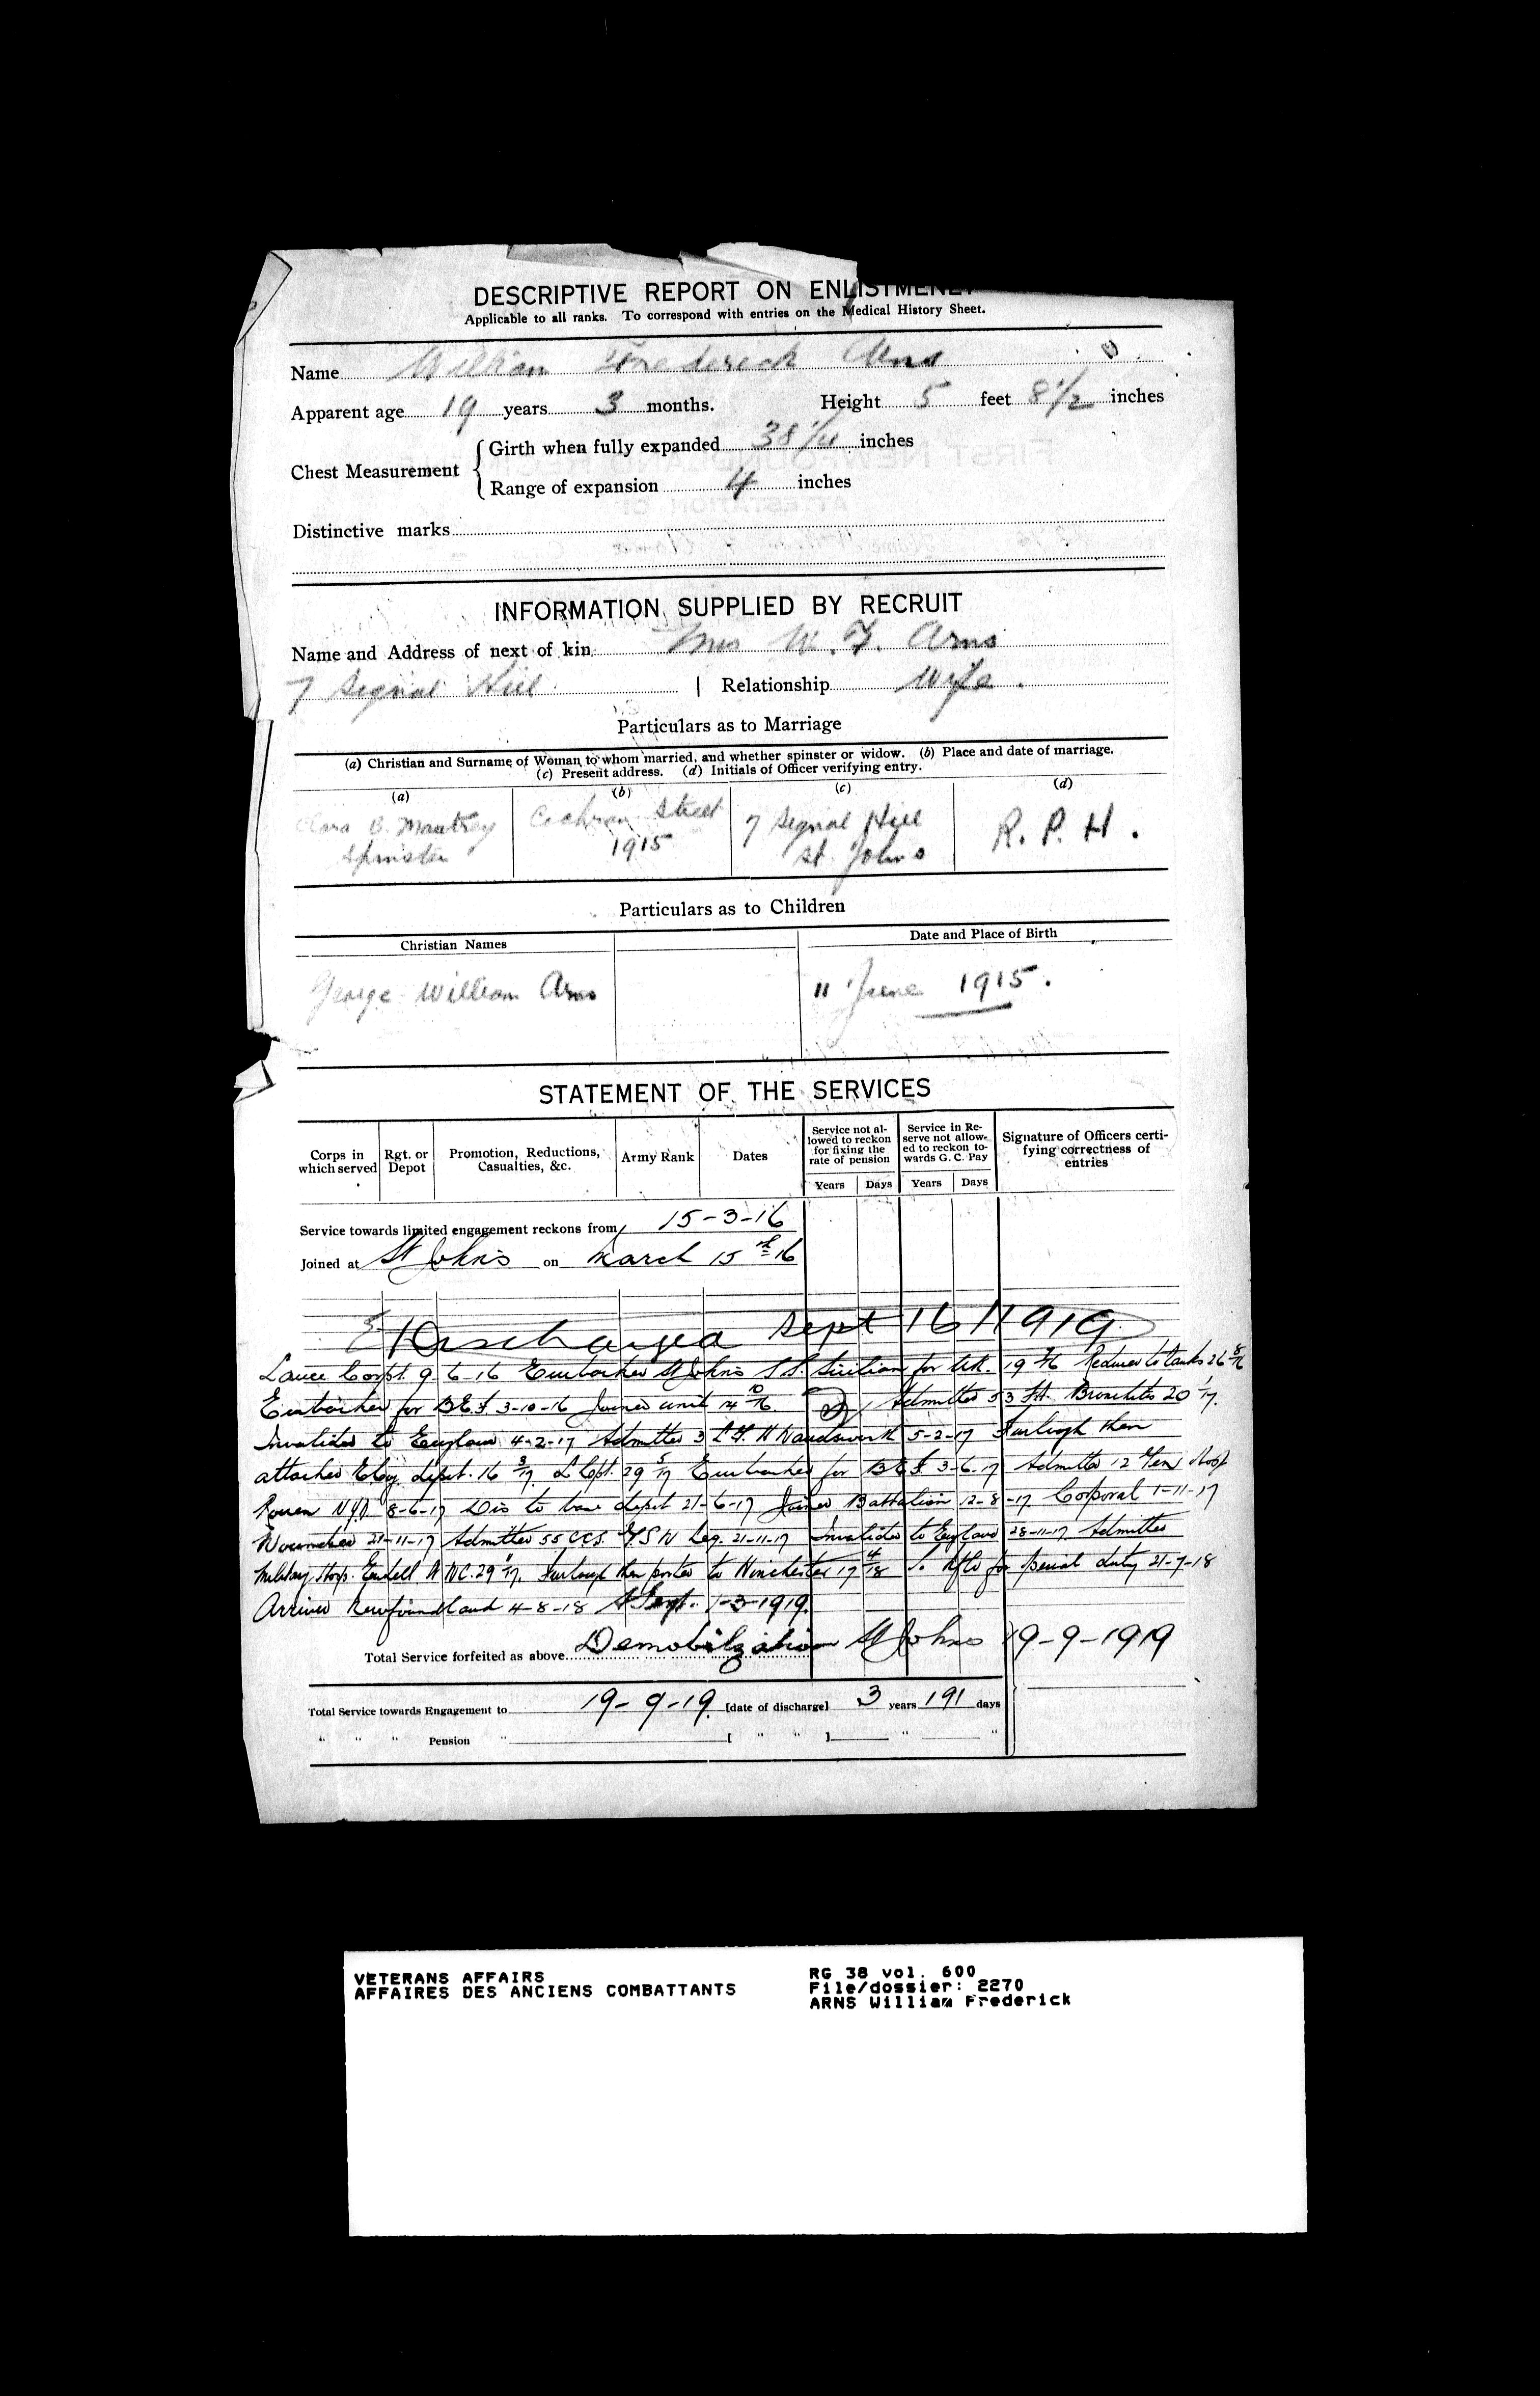 DESCRIPTIVE REPORT ON ENLISTMENT
Applicable to all ranks. To correspond with entries on the Medical History Sheet.
Name William Frederick Arns
Apparent age 19 years 3 months. Height 5 feet 8 1/2 inches
Chest Measurement
Girth when fully expanded 38 1/4 inches
Range of expansion 4 inches
Distinctive marks
INFORMATION SUPPLIED BY RECRUIT
Name and Address of next of kin Mrs W. F. Arns
7 Signal Hill | Relationship Wife.
Particulars as to Marriage
(a) Christian and Surname of Woman to whom married, and whether spinster or widow. (b) Place and date of marriage.
(c) Present address. (d) Initials of Officer verifying entry.
(a) (b) (c) (d)
Clara B. Cochran Street 7 Signal Hill R. P. H.
Spinster 1915 St. Johns
Particulars as to Children
Christian Names Date and Place of Birth
George William Arns 11 June 1915.
STATEMENT OF THE SERVICES
Corps in which served Rgt. or Depot Promotion, Reductions, Casualties, &c. Army Rank Dates Service not allowed to reckon for fixing the rate of pension Service in Reserve not allowed to reckon towards G. C. Pay Signature of Officers certifying correctness of entries
Years Days Years Days
Service towards limited engagement reckons from 15-3-16
Joined at St John's on March 15th 16
Discharged Sept 16 1919
Lance Corpl. 9 6-16 Embarked St Johns S.S. Sicilian for U.K. 19 6/16 Reduced to ranks 26 8/16
Embarked for B.E.F. 3-10-16 Joined unit 14 10/16 Admitted 53 F.A. Bronchitis 20 1/17.
Invalided to England 4-2-17 Admitted 3 L.G.H Wandsworth 5-2-17 Furlough then
attached depot. 16 3/17 L Cpl. 29 5/17 Embarked for B.E.F. 3-6-17 Admitted 12 Gen Hosp
Rouen NYD 8-6-17 Dis to base depot 21-6-17 Joined Battalion 12-8-17 Corporal 1-11-17
Wounded 21-11-17 Admitted 55 CCS. G.S.W Leg. 21-11-17 Invalided to England 28-11-17 Admitted
Military Hosp. Endell St W.C. 29 Furlough then posted to Winchester 17 4/18 To Nfld for special duty 21-7-18
Arrived Newfoundland 4-8-18 A Sergt. 1-3-1919.
Total Service forfeited as above Demobilzation St Johns 19-9-1919
Total Service towards Engagement to 19-9-19 [date of discharge] 3 years 191 days
" " " Pension " [ " " ] " "
VETERANS AFFAIRS RG 38 vol. 600
AFFAIRES DES ANCIENS COMBATTANTS File/dossier: 2270
ARNS William Frederick